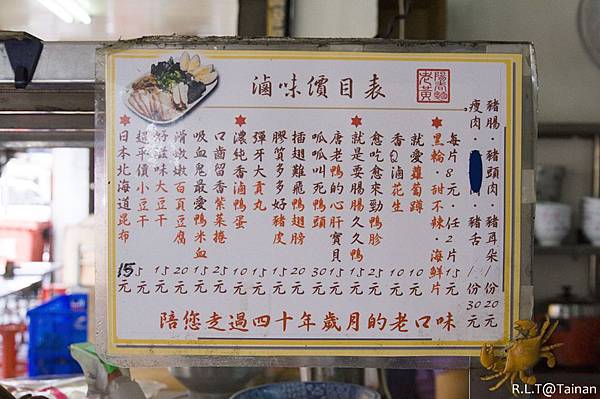 滷味價目表
老黃
豬腸．豬頭肉．豬耳朵/份20元
瘦肉．豬舌/份30元
每片8元．任2片15元
黑輪．甜不辣．海鮮片
就愛蘿蔔蹲10元
香Q滷花生10元
愈吃愈來勁鴨胗25元
就是要腸腸久久鴨15元
唐老鴨的心肝寶貝15元
呱呱叫死鴨頭30元
插翅難飛鴨翅膀20元
膠質多多好豬皮15元
彈牙大貢丸15元
濃純香滷鴨蛋10元
口齒留香紫菜捲25元
吸血鬼最愛鴨米血15元
滑嫩嫩百頁豆腐20元
好滋味大豆干15元
超平價小豆干5元
日本北海道昆布15元
陪您走過四十年歲月的老口味
R.L.T@Tainan